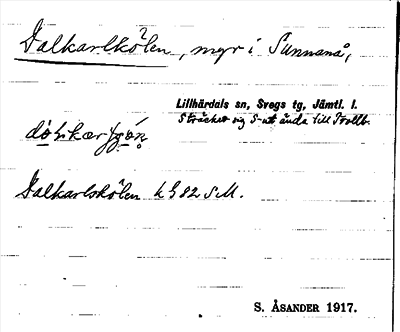 Dalkarlkölen, myr i Sunnanå,
Lillhärdals sn, Svegs tg, Jämtl. l.
Sträcker sig S-ut ända till Trollb.
Dalkarlskölen LS 82 S.M.
S. ÅSANDER 1917.